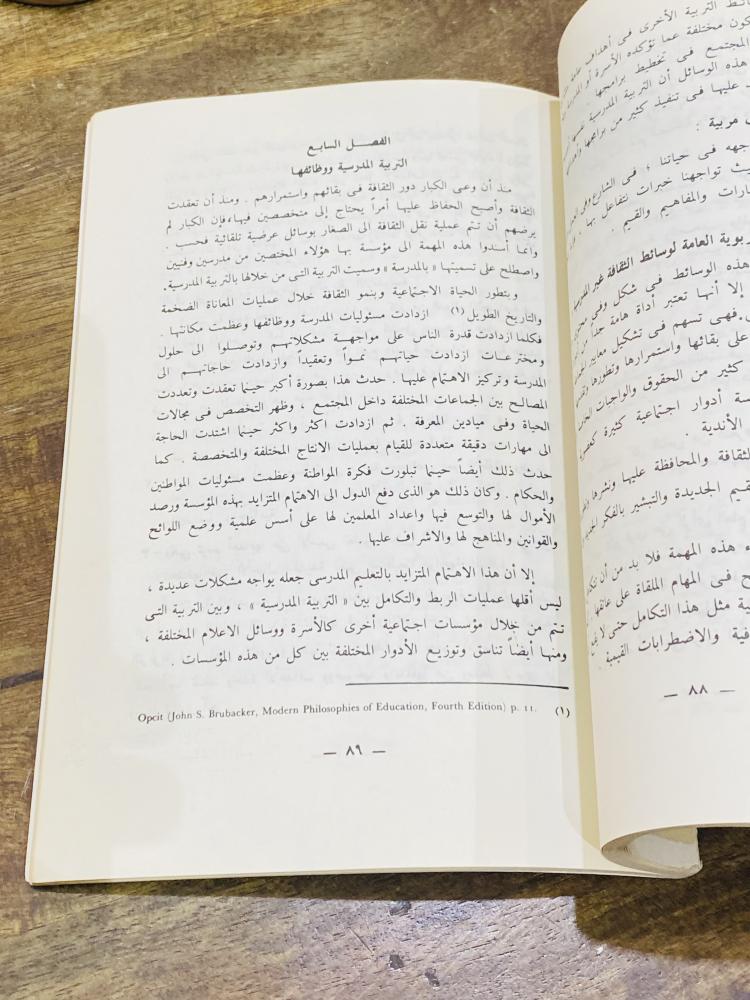 ـائط التربية الأخرى فى أهداف
ـكون مختلفة عما تؤكده الأسرة أو
المجتمع فى تخطيط برامجها
هذه الوسائل أن التربية المدرسية
عليها فى تنفيذ كثير من برامجها
مربية :
ـواجهه فى حياتنا ؛ فى الشارع وفى
ـيث تواجهنا خبرات نتفاعل بها ،
ـارات والمفاهيم والقيم .
ـربوية العامة لوسائط الثقافة غير المدرسية
هذه الوسائط فى شكل وفى
إلا أنها تعتبر أداة هامة جداً من
، فهى تسهم فى تشكيل معايير
على بقائها واستمرارها وتطورها
كثير من الحقوق والواجبات
ـسة أدوار اجتماعية كثيرة
الأندية .
الثقافة والمحافظة عليها ونشرها
ـقيم الجديدة والتبشير بالفكر
هذه المهمة فلا بد من أن
فى المهام الملقاة على عاتقها
مثل هذا التكامل حتى لا
ـافية والاضطرابات القيمية .
— ٨٨ —
الفصل السابع
التربية المدرسية ووظائفها
منذ أن وعى الكبار دور الثقافة فى بقائهم واستمرارهم . ومنذ أن تعقدت
الثقافة وأصبح الحفاظ عليها أمراً يحتاج إلى متخصصين فيها، فإن الكبار لم
يرضهم أن تتم عملية نقل الثقافة الى الصغار بوسائل عرضية تلقائية فحسب .
وانما أسندوا هذه المهمة الى مؤسسة بها هؤلاء المختصين من مدرسين وفنيين
واصطلح على تسميتها « بالمدرسة » وسميت التربية التى من خلالها بالتربية المدرسية.
وبتطور الحياة الاجتماعية وبنمو الثقافة خلال عمليات المعاناة الضخمة
والتاريخ الطويل (١) ازدادت مسئوليات المدرسة ووظائفها وعظمت مكانتها .
فكلما ازدادت قدرة الناس على مواجهة مشكلاتهم وتوصلوا الى حلول
ومخترعات ازدادت حياتهم نمواً وتعقيداً وازدادت حاجاتهم الى
المدرسة وتركيز الاهتمام عليها . حدث هذا بصورة أكبر حينما تعقدت وتعددت
المصالح بين الجماعات المختلفة داخل المجتمع ، وظهر التخصص فى مجالات
الحياة وفى ميادين المعرفة . ثم ازدادت اكثر واكثر حينما اشتدت الحاجة
الى مهارات دقيقة متعددة للقيام بعمليات الانتاج المختلفة والمتخصصة . كما
حدث ذلك أيضاً حينما تبلورت فكرة المواطنة وعظمت مسئوليات المواطنين
والحكام . وكان ذلك هو الذى دفع الدول الى الاهتمام المتزايد بهذه المؤسسة ورصد
الأموال لها والتوسع فيها واعداد المعلمين لها على أسس علمية ووضع اللوائح
والقوانين والمناهج لها والاشراف عليها .
إلا أن هذا الاهتمام المتزايد بالتعليم المدرسى جعله يواجه مشكلات عديدة ،
ليس أقلها عمليات الربط والتكامل بين « التربية المدرسية » ، وبين التربية التى
تتم من خلال مؤسسات اجتماعية أخرى كالأسرة ووسائل الاعلام المختلفة ،
ومنها أيضاً تناسق وتوزيع الأدوار المختلفة بين كل من هذه المؤسسات .
(١) Opcit (John S. Brubacker, Modern Philosophies of Education, Fourth Edition) p. 11.
— ٨٩ —